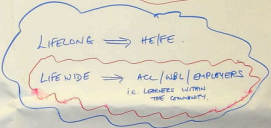 LIFELONG ⟹ HE/FE.
LIFEWIDE ⟹ ACL/WBL/EMPLOYERS
i.e. LEARNERS WITHIN
THE COMMUNITY.